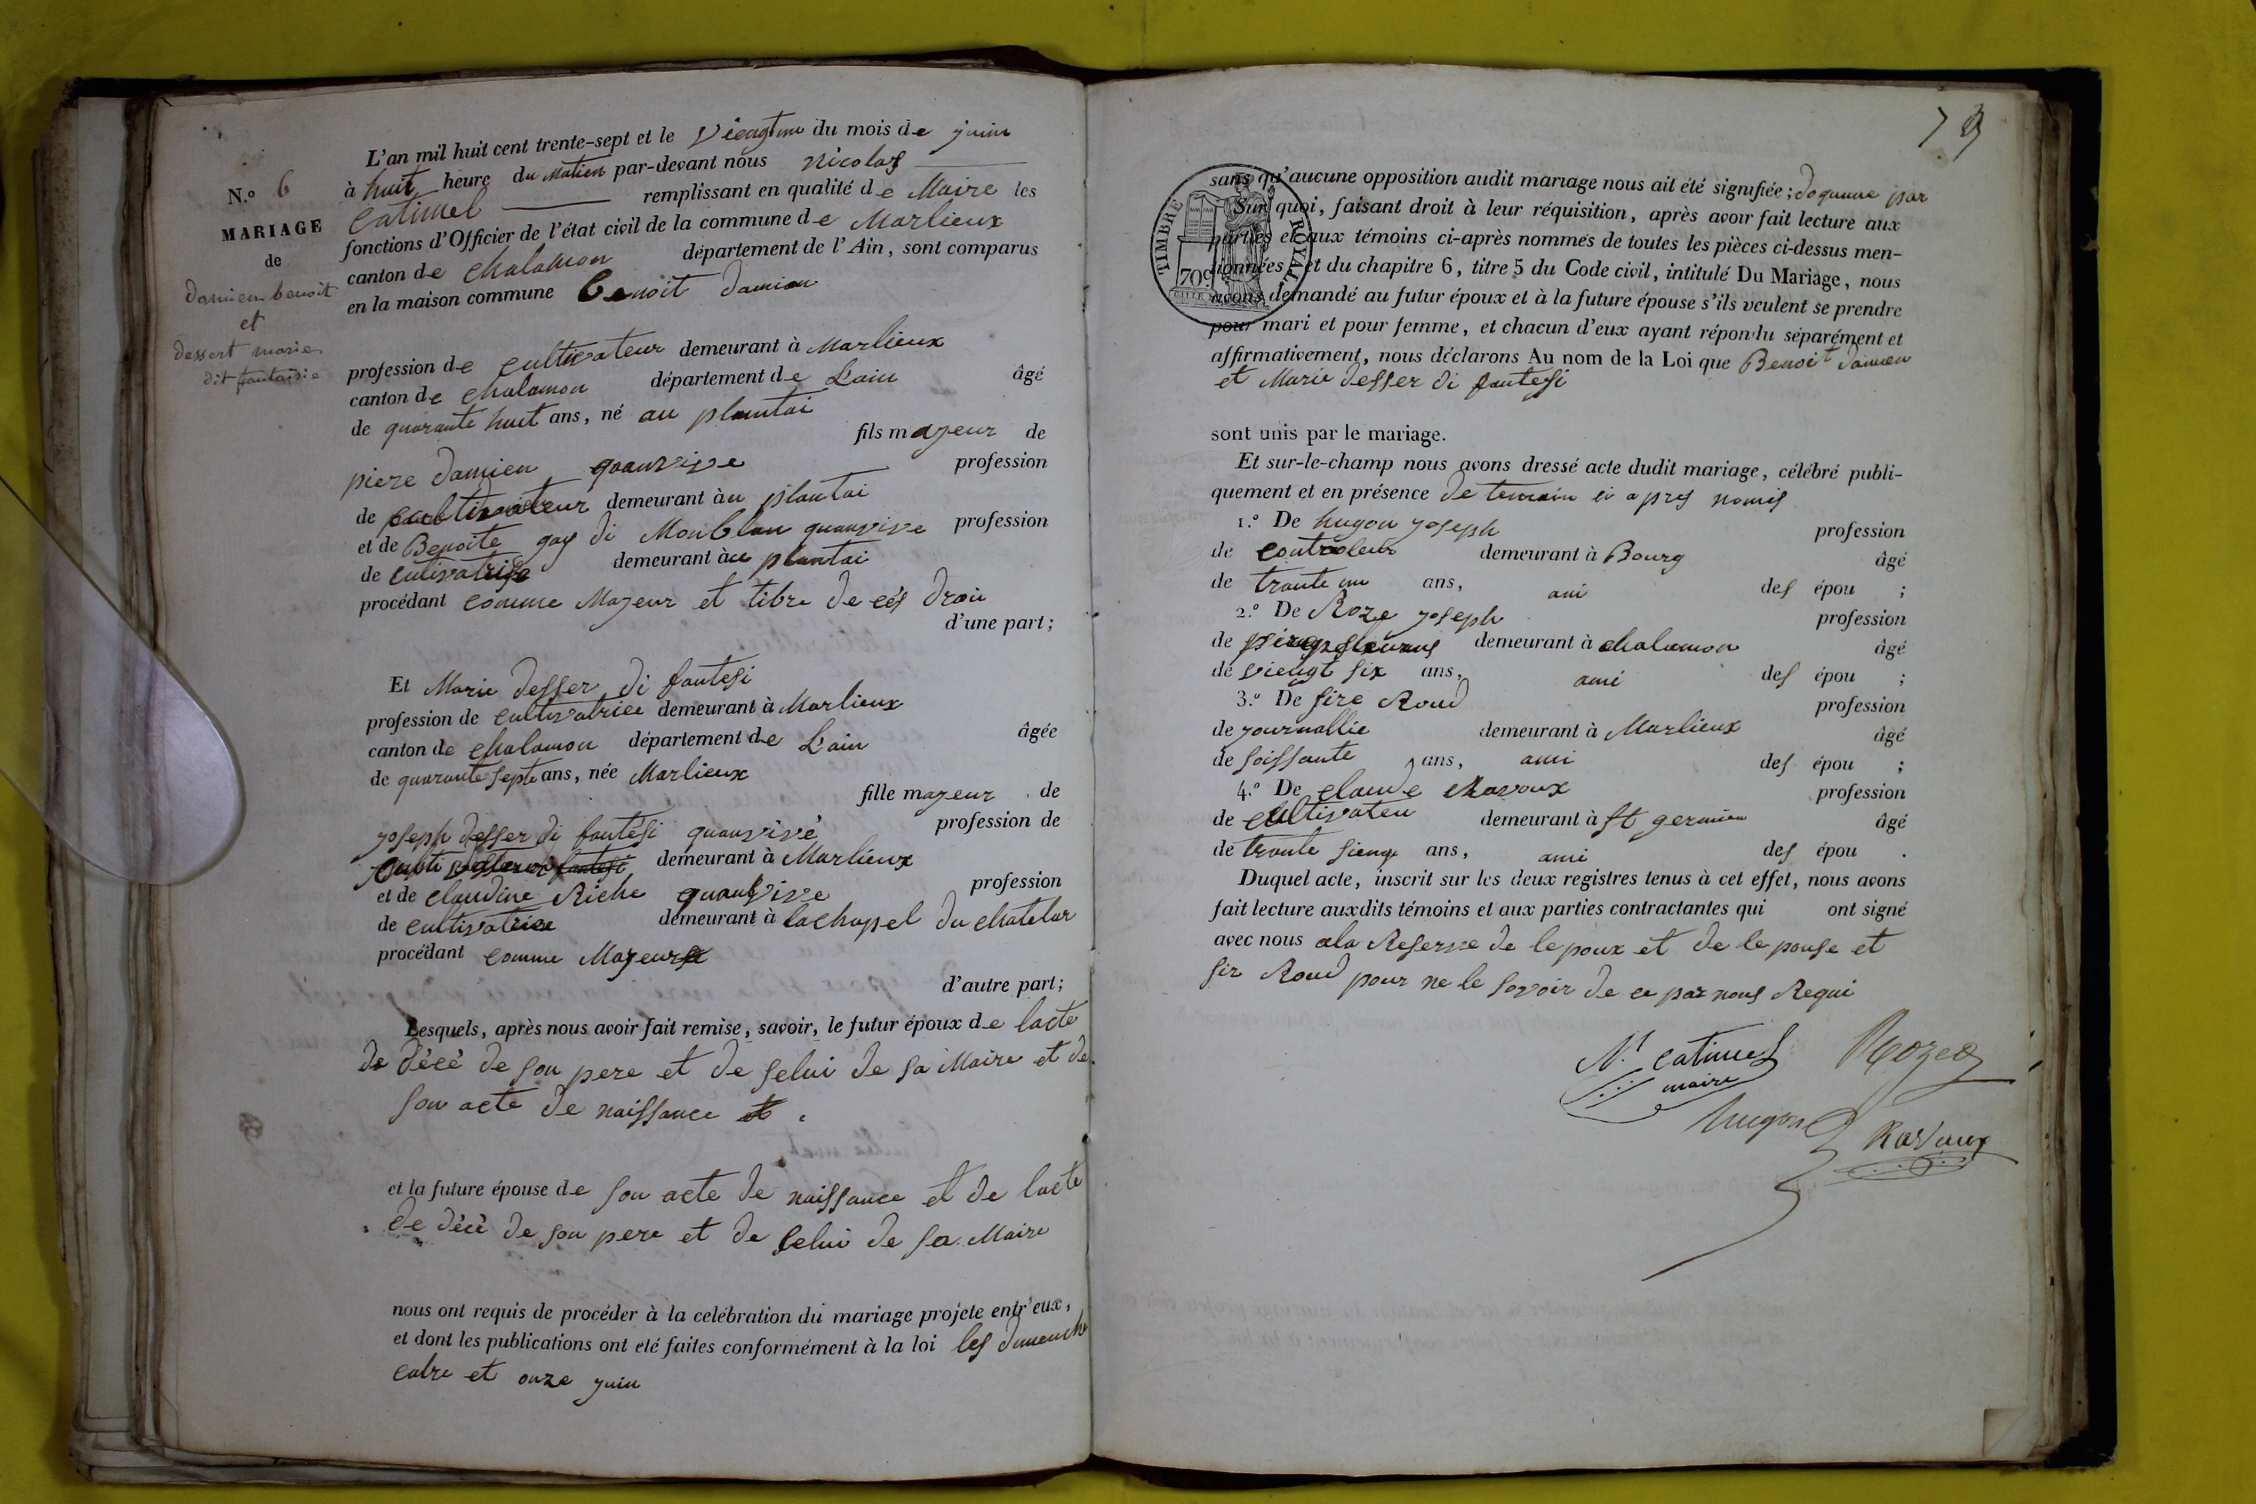 N.o 6
MARIAGE
de
damien benoit
et
dessert marie
dit fantaisie
L'an mil huit cent trente-sept et le viengt une du mois de juin
à huit heure du Matien par-devant nous nicolas
Catimel remplissant en qualité de Maire les
fonctions d'Officier de l'état civil de la commune de Marlieux
canton de chalamon département de l'Ain, sont comparus
en la maison commune Benoit damien
profession de cultivateur demeurant à Marlieux
canton de chalamon département de Lain âgé
de quarante huit ans, né au plantai
fils majeur de
piere damien quanvive profession
de cultivateur demeurant àu plantai
et de Benoite gay di Monblan quanvive profession
de cutivatrise demeurant àu plantai
procédant comme Majeur et libre de cés droiu
d'une part;
Et Marie desser di fantesi
profession de cultivatrice demeurant à Marlieux
canton de chalamon département de Lain âgée
de quarante sept ans, née Marlieux
fille majeur de
joseph desser di fantési quanvivé profession de
demeurant à Marlieux
et de claudine Riche quanvive profession
de cultivatrice demeurant à lachapel du chatelar
procédant comme Majeure
d'autre part;
Lesquels, après nous avoir fait remise, savoir, le futur époux de lacte
de décé de son pere et de selui de sa Maire et de
son acte de naissance et
et la future épouse de son acte de naissance et de lacte
de décé de son pere et de selui de sa Maire
nous ont requis de procéder à la celébration du mariage projete entr'eux,
et dont les publications ont eté faites conformément à la loi les dimench
catre et onze juin
79
TIMBRE ROYAL
70c.
sans qu'aucune opposition audit mariage nous ait été signifiée; doqunne par
Sur quoi, faisant droit à leur réquisition, après avoir fait lecture aux
parties et aux témoins ci-après nommés de toutes les pièces ci-dessus men-
tionnées, et du chapitre 6, titre 5 du Code civil, intitulé Du Mariage, nous
avons demandé au futur époux et à la future épouse s'ils veulent se prendre
pour mari et pour femme, et chacun d'eux ayant répondu séparément et
affirmativement, nous déclarons Au nom de la Loi que Benoit damien
et Marie desser di fantesi
sont unis par le mariage.
Et sur-le-champ nous avons dressé acte dudit mariage, célébré publi-
quement et en présence de temoin si apres només
1.o De hugon joseph profession
de controleur demeurant à Bourg âgé
de trante un ans, ami des épou ;
2.o De Roze joseph profession
de demeurant à chalamon âgé
de viengt six ans, ami des épou ;
3.o De sire Roud profession
de journallie demeurant à Marlieux âgé
de soissante ans, ami des épou ;
4.o De claude Ravoux profession
de cultivateu demeurant à st germien âgé
de trante sienq ans, ami des épou .
Duquel acte, inscrit sur les deux registres tenus à cet effet, nous avons
fait lecture auxdits témoins et aux parties contractantes qui ont signé
avec nous ala Reserve de lepoux et de lepouse et
sir Roud pour ne le savoir de ce par nous Requi
N.t Catimel Roze
maire
hugon Ravoux